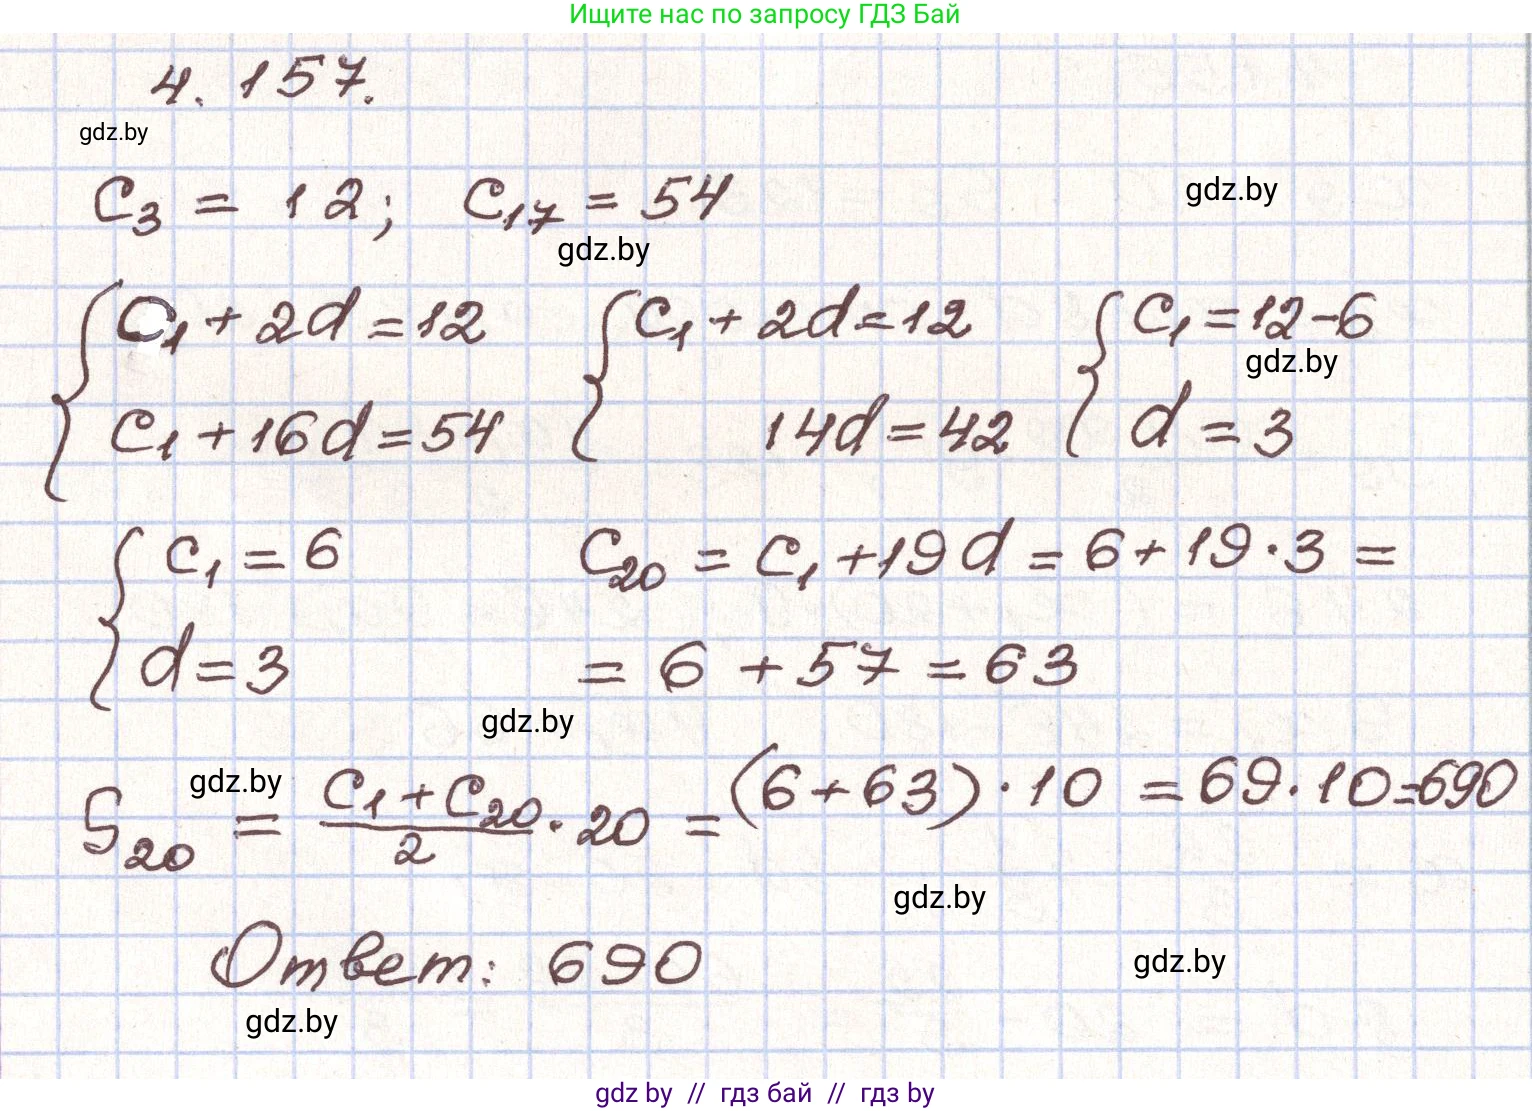 Ищите нас по запросу ГДЗ Бай
4. 157.
gdz.by
C₃ = 12; C₁₇ = 54
gdz.by
gdz.by
{ C₁ + 2d = 12 { C₁ + 2d = 12 { C₁ = 12 - 6
gdz.by
C₁ + 16d = 54 14d = 42 d = 3
{ C₁ = 6 C₂₀ = C₁ + 19d = 6 + 19 · 3 =
d = 3 = 6 + 57 = 63
gdz.by
gdz.by
S₂₀ = (C₁ + C₂₀)/2 · 20 = (6 + 63) · 10 = 69 · 10 = 690
gdz.by
Ответ: 690
gdz.by
gdz.by
gdz by // гдз бай // гдз by